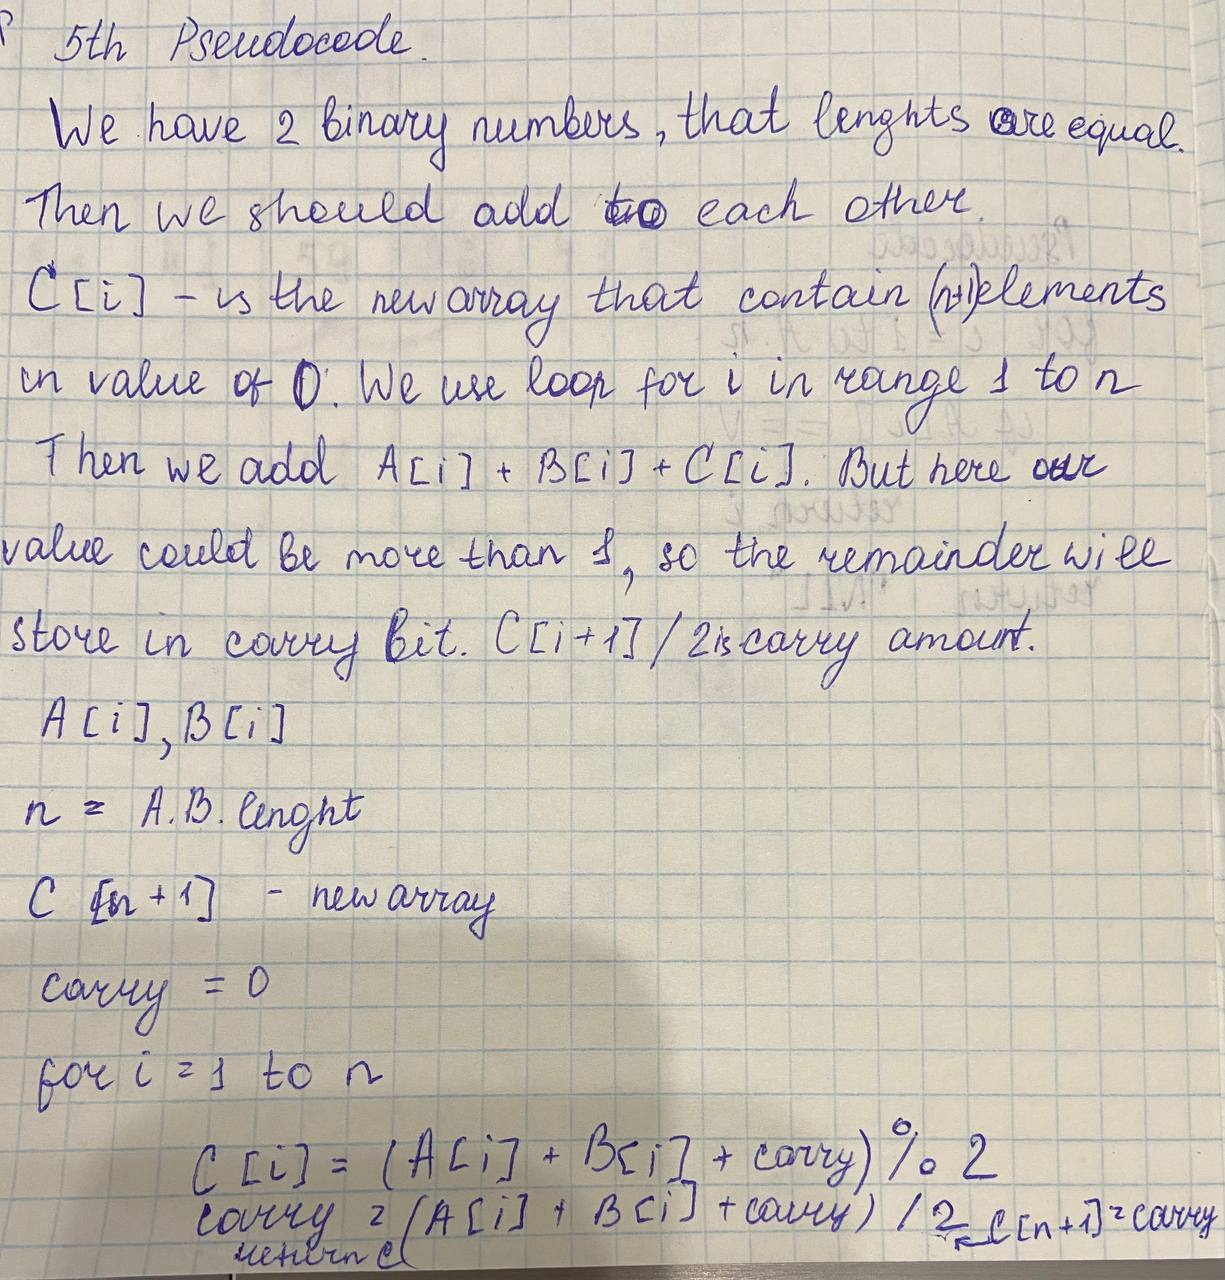 5th Pseudocode.
We have 2 binary numbers, that lenghts are equal.
Then we should add to each other.
C[i] - is the new array that contain (n+1)elements
in value of 0. We use loop for i in range 1 to n
Then we add A[i] + B[i] + C[i]. But here our
value could be more than 1, so the remainder will
store in carry bit. C[i+1] / 2 is carry amount.
A[i], B[i]
n = A.B. lenght
C [n+1] - new array
carry = 0
for i = 1 to n
C[i] = (A[i] + B[i] + carry) % 2
carry = (A[i] + B[i] + carry) / 2 C[n+1] = carry
return C